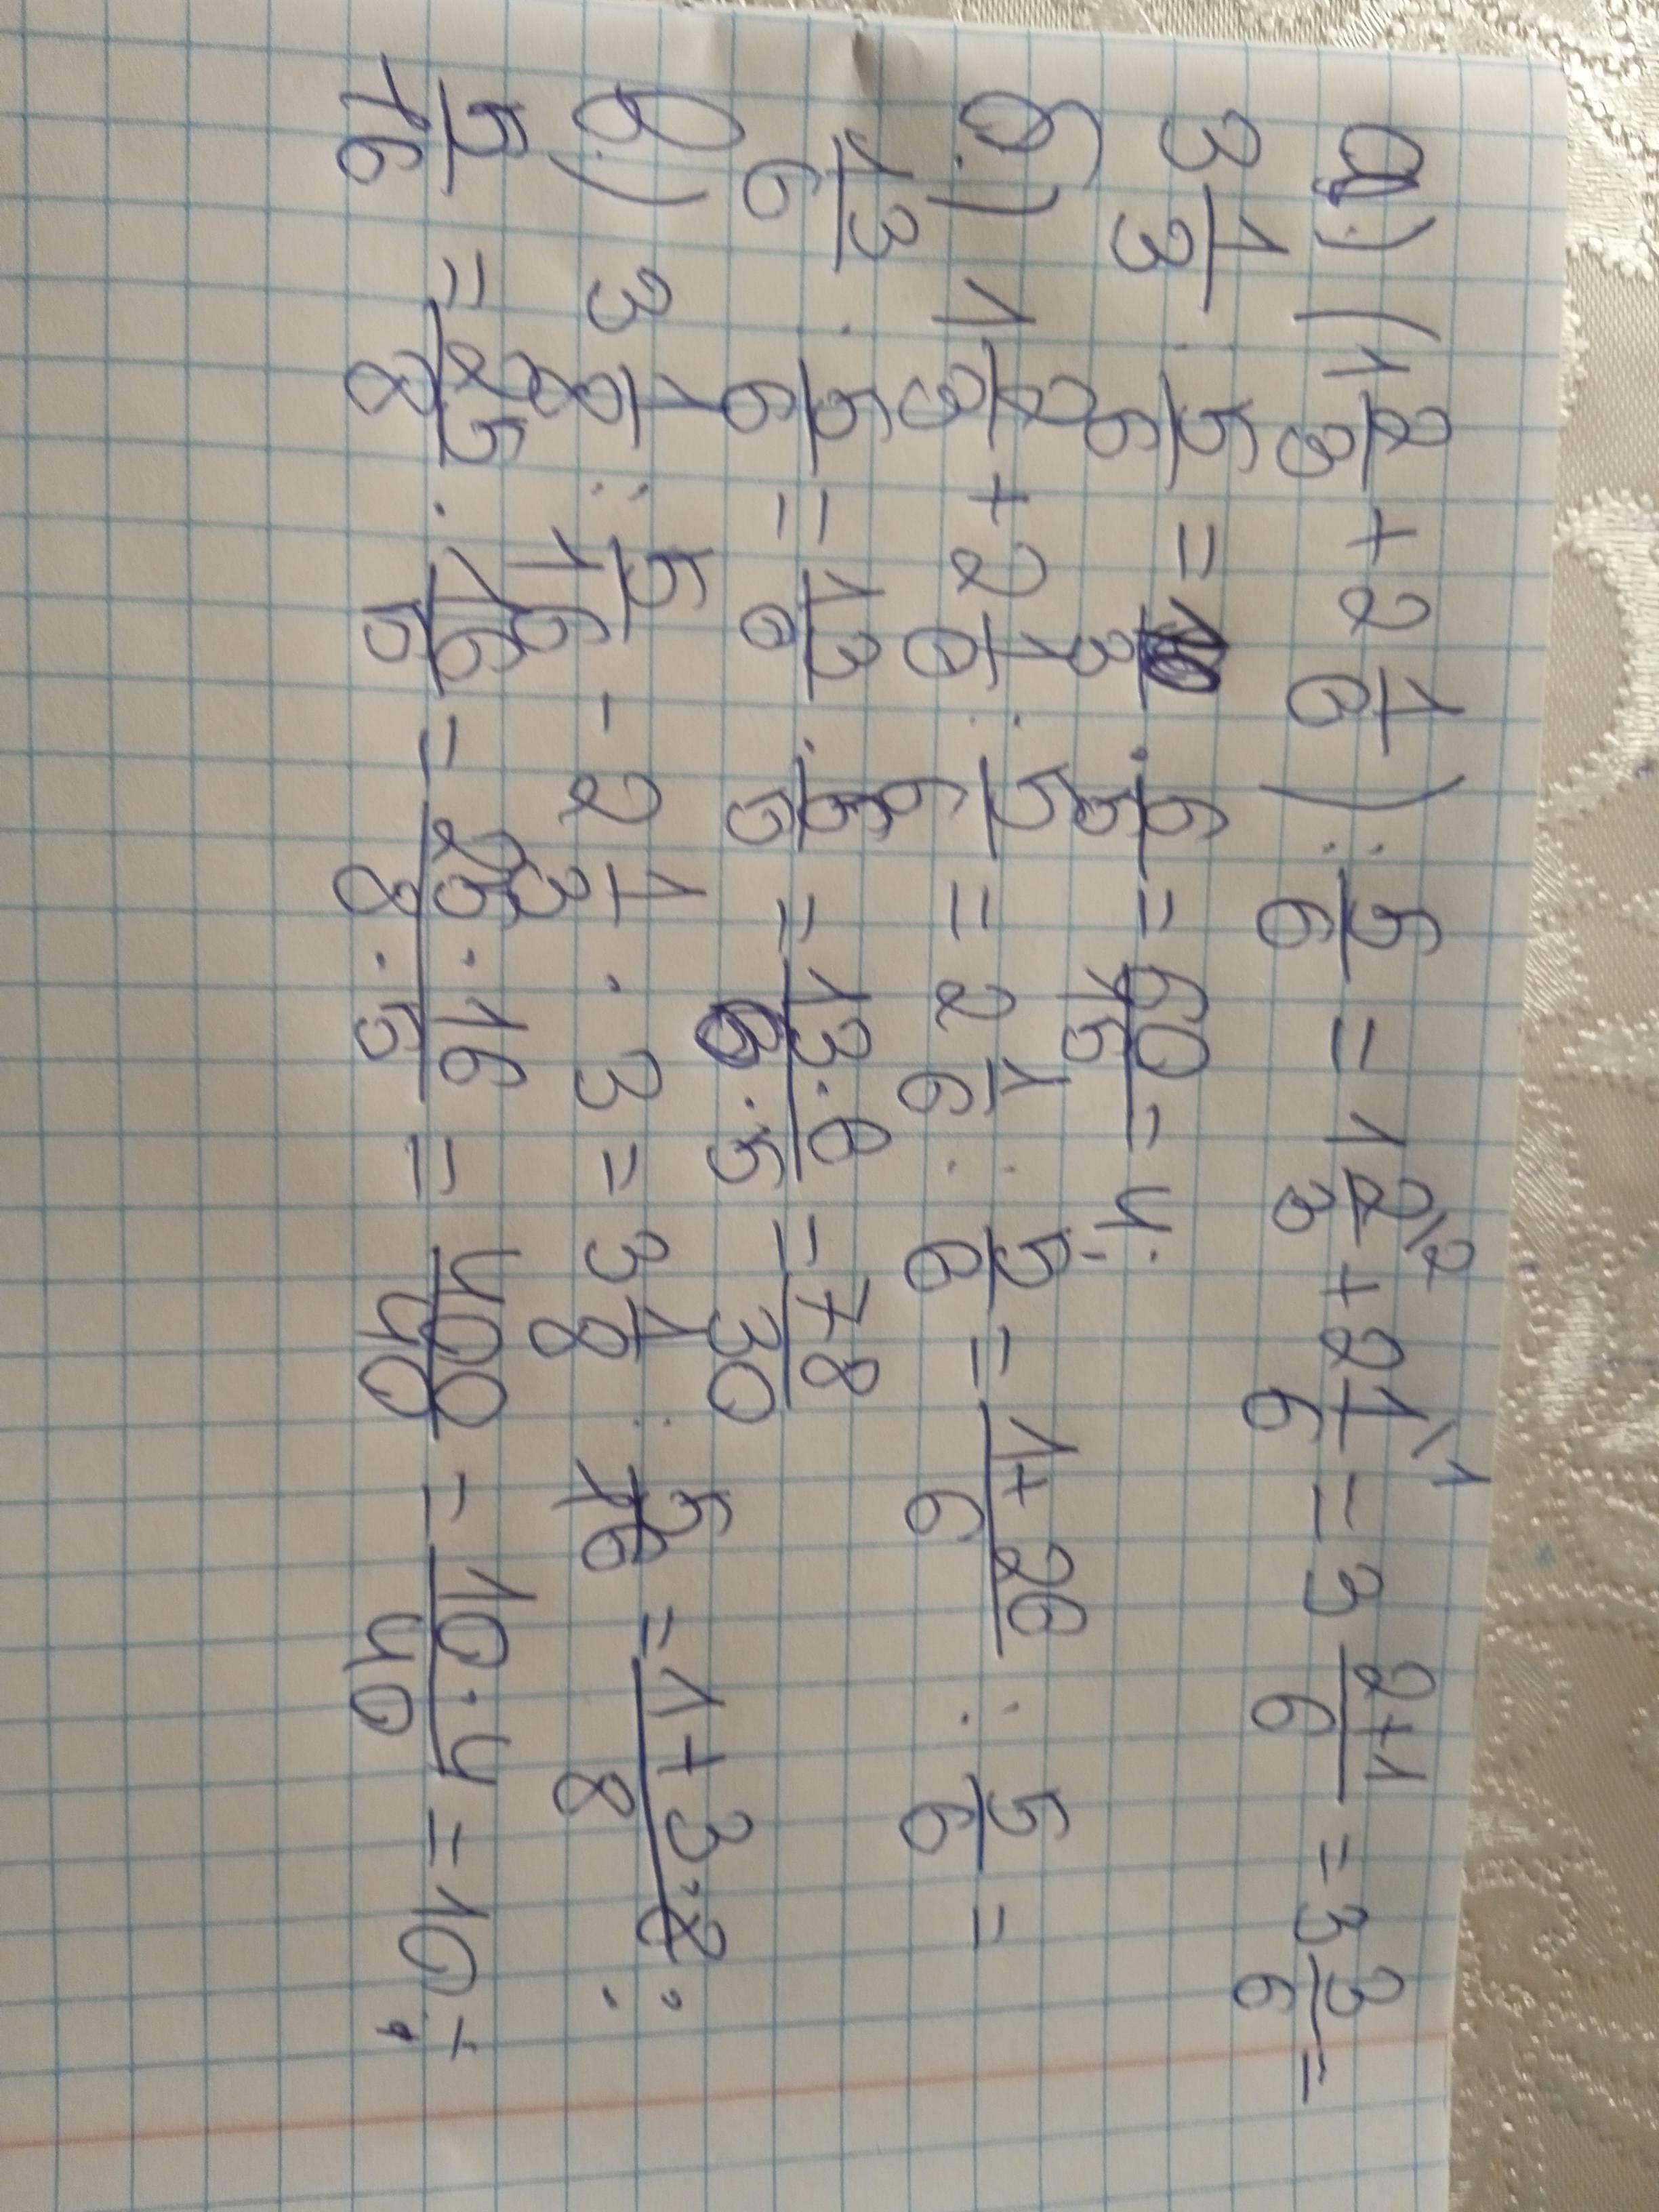 а.) (1 2/3 + 2 1/6) : 5/6 = 1 2/3\2 + 2 1/6\1 = 3 2+1/6 = 3 3/6 =
3 1/3 : 5/6 = /3 · 6/5 = 60/15 = 4;
б.) 1 2/3 + 2 1/6 : 5/6 = 2 1/6 : 5/6 = 1+26/6 : 5/6 =
13/6 : 5/6 = 13/6 · 6/5 = 13·6/6·5 = 78/30
в.) 3 1/8 : 5/16 - 2 1/3 · 3 = 3 1/8 : 5/16 = 1+3·8/8 :
5/16 = 25/8 · 16/5 = 25·16/8·5 = 400/40 = 10·4/40 = 10;